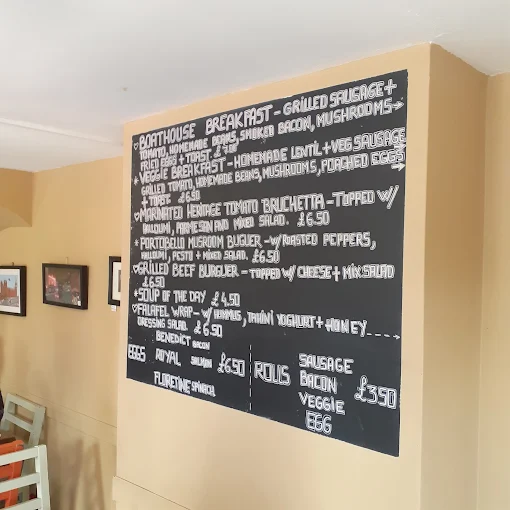 ♡BOATHOUSE BREAKFAST - GRILLED SAUSAGE +
TOMATO, HOMEMADE BEANS, SMOKED BACON, MUSHROOMS→
FRIED EGGS + TOAST £7.50
* VEGGIE BREAKFAST - HOMEMADE LENTIL + VEG SAUSAGE
GRILLED TOMATO, HOMEMADE BEANS, MUSHROOMS, POACHED EGGS
+ TOAST £6.50
♡MARINATED HERITAGE TOMATO BRUCHETTA - TOPPED W/
HALLOUMI, PARMESAN AND MIXED SALAD. £6.50
* PORTOBELLO MUSROOM BUGUER - W/ ROASTED PEPPERS,
HALLOUMI, PESTO + MIXED SALAD. £6.50
♡GRILLED BEEF BURGUER - TOPPED W/ CHEESE + MIX SALAD
£6.50
* SOUP OF THE DAY £4.50
♡FALAFEL WRAP - W/ HUMMUS, TAHINI YOGHURT + HONEY
DRESSING SALAD. £6.50
EGGS
BENEDICT BACON
ROYAL SALMON
FLORETINE SPINACH
£6.50
ROLLS
SAUSAGE
BACON
VEGGIE
EGG
£3.50